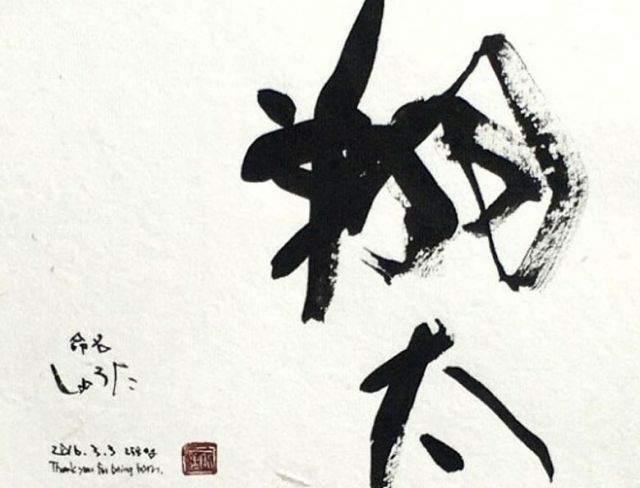 翔太
命名
しゅうた
2016.3.3
Thank you for being born.